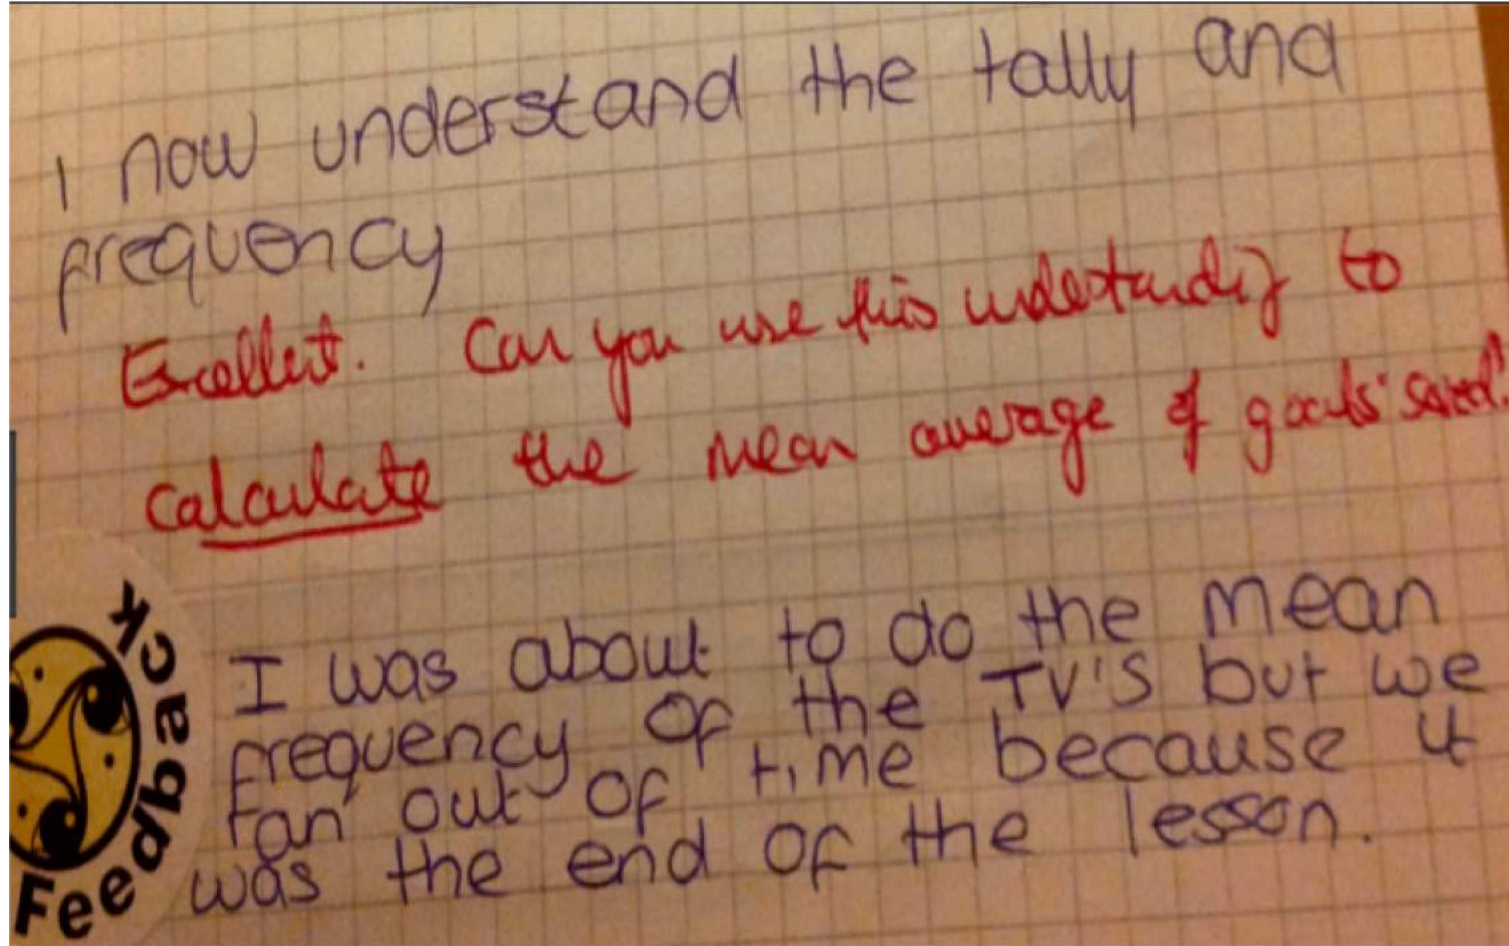 I now understand the tally and
frequency
Excellent. Can you use this understanding to
calculate the mean average of goals
Feedback
I was about to do the mean
frequency of the TV'S but we
ran out of time because it
was the end of the lesson.